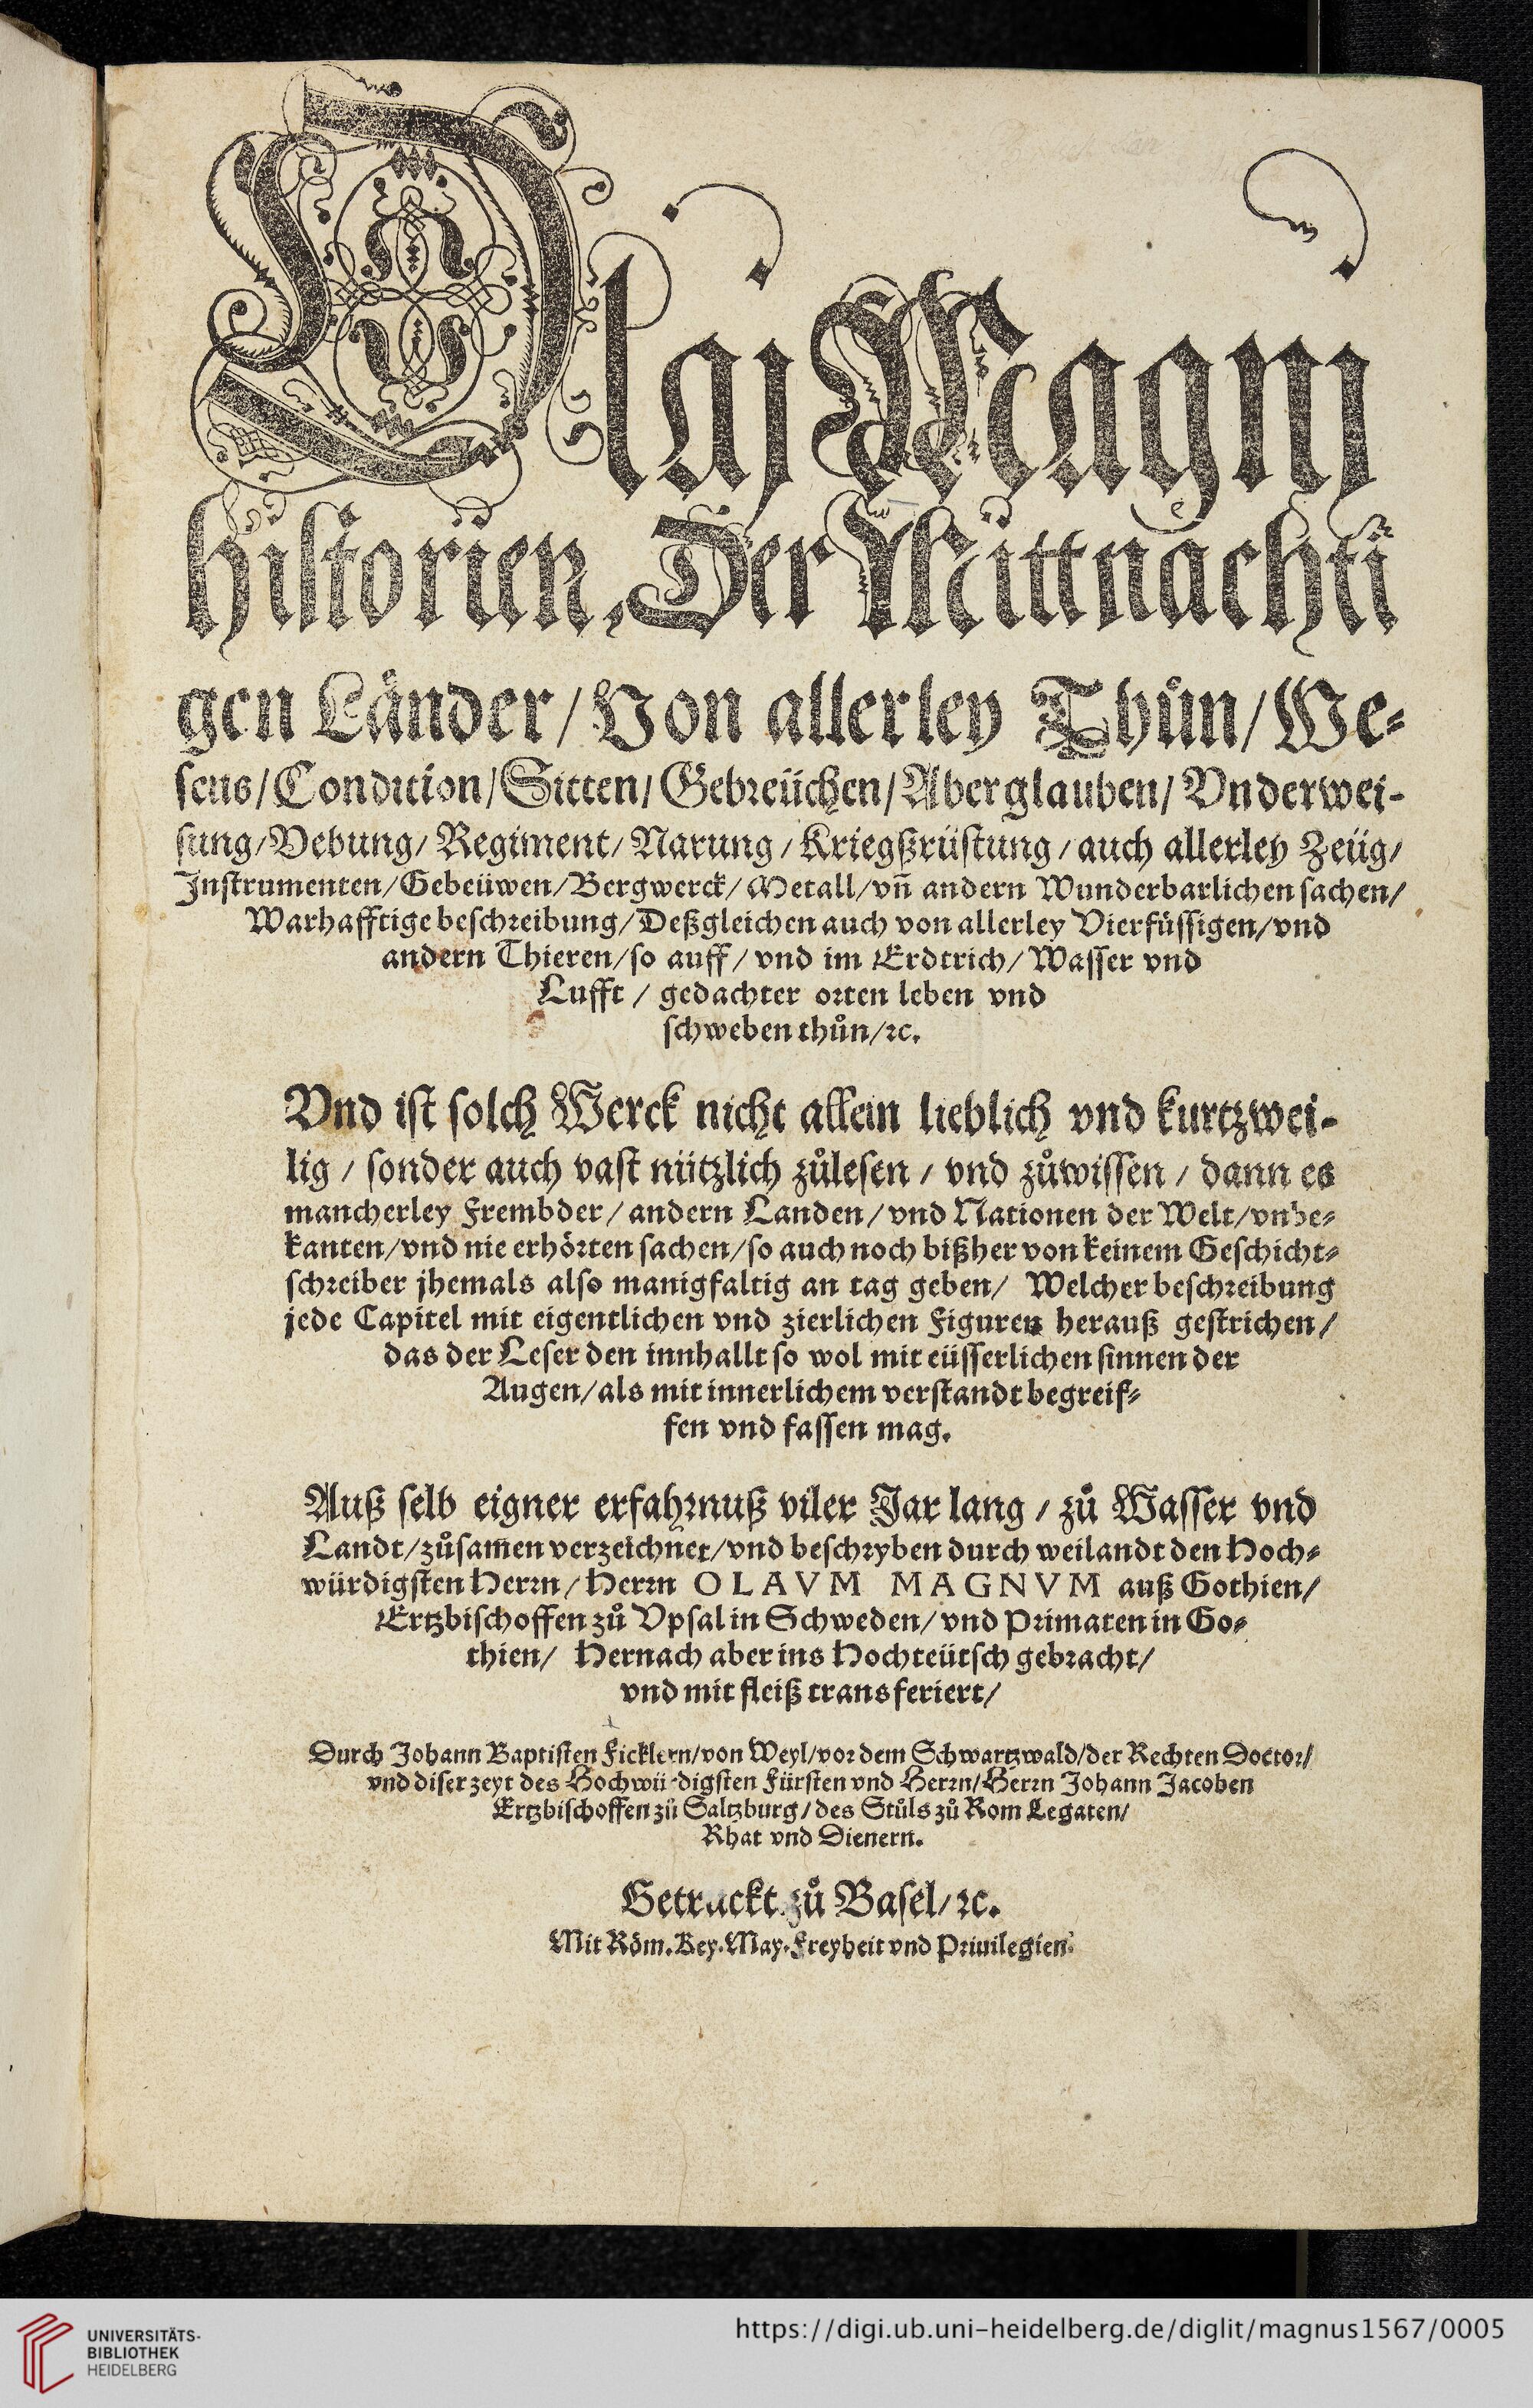 Olaj Magnj
Historien, Der Mittnächti
gen Länder/ Von allerley Thůn/ We-
sens/ Condition/ Sitten/ Gebreüchen/ Aberglauben/ Vnderwei-
sung/ Vebung/ Regiment/ Narung/ Kriegßrüstung/ auch allerley Zeüg/
Instrumenten/ Gebeüwen/ Bergwerck/ Metall/ vn̄ andern Wunderbarlichen sachen/
Warhafftige beschreibung/ Deßgleichen auch von allerley Vierfüssigen/ vnd
andern Thieren/ so auff/ vnd im Erdtrich/ Wasser vnd
Lufft/ gedachter orten leben vnd
schweben thůn/ ꝛc.
Vnd ist solch Werck nicht allein lieblich vnd kurtzwei-
lig/ sonder auch vast nützlich zůlesen/ vnd zůwissen/ dann es
mancherley Frembder/ andern Landen/ vnd Nationen der Welt/ vnbe-
kanten/ vnd nie erhörten sachen/ so auch noch bißher von keinem Geschicht-
schreiber jhemals also manigfaltig an tag geben/ Welcher beschreibung
jede Capitel mit eigentlichen vnd zierlichen Figuren herauß gestrichen/
das der Leser den innhallt so wol mit eüsserlichen sinnen der
Augen/ als mit innerlichem verstandt begreif-
fen vnd fassen mag.
Auß selb eigner erfahrnuß viler Jar lang/ zů Wasser vnd
Landt/ zůsam̄en verzeichnet/ vnd beschryben durch weilandt den Hoch-
würdigsten Herrn/ Herrn OLAVM MAGNVM auß Gothien/
Ertzbischoffen zů Vpsal in Schweden/ vnd Primaten in Go-
thien/ Hernach aber ins Hochteütsch gebracht/
vnd mit fleiß transferiert/
Durch Johann Baptisten Ficklern/ von Weyl/ vor dem Schwartzwald/ der Rechten Doctor/
vnd diser zeyt des Hochwürdigsten Fürsten vnd Herrn/ Herrn Johann Jacoben
Ertzbischoffen zů Saltzburg/ des Stůls zů Rom Legaten/
Rhat vnd Dienern.
Getruckt zů Basel/ ꝛc.
Mit Röm. Key. May. Freyheit vnd Priuilegien.
UNIVERSITÄTS-
BIBLIOTHEK
HEIDELBERG
https://digi.ub.uni-heidelberg.de/diglit/magnus1567/0005